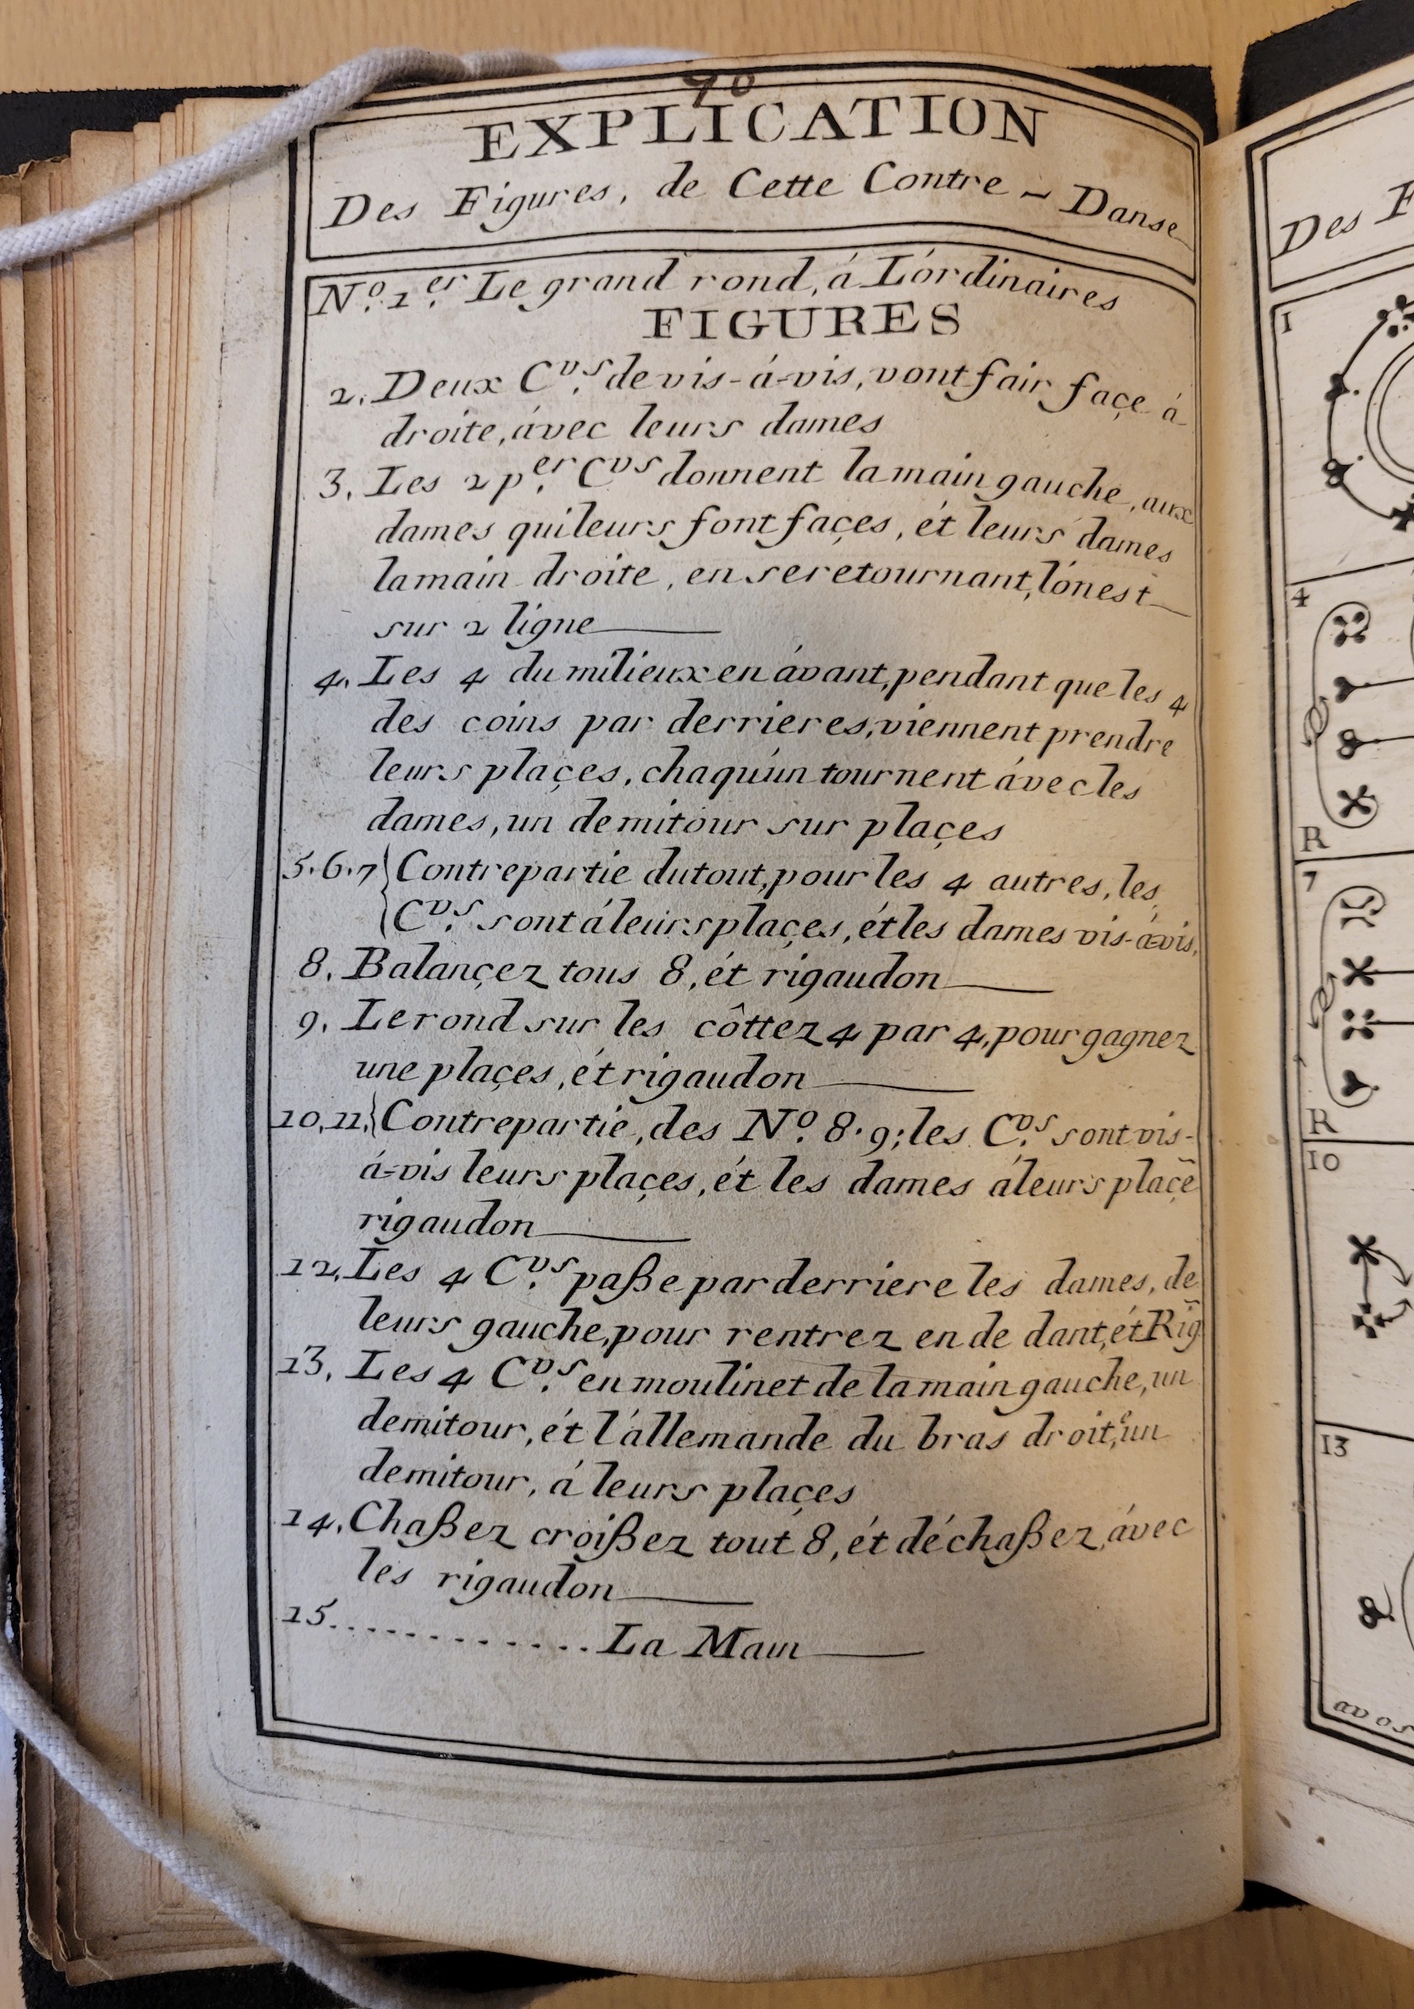 90
EXPLICATION
Des Figures, de Cette Contre - Danse
No. 1er Le grand rond, á L'órdinaires
FIGURES
2. Deux Cvs. de vis-á-vis, vont fair façe à
droite, ávec leurs dames
3. Les 2 per. Cvs donnent la main gauche, aux
dames qui leurs font façes, ét leurs dames
la main droite, en se retournant, l'ón est
sur 2 ligne
4. Les 4 du milieux en ávant, pendant que les 4
des coins par derrieres, viennent prendre
leurs plaçes, chaqu'ún tournent ávec les
dames, un demitour sur plaçes
5.6.7 { Contrepartie du tout, pour les 4 autres, les
Cvs. sont á leurs plaçes, ét les dames vis-á-vis,
8. Balançez tous 8, ét rigaudon
9. Le rond sur les côttez 4 par 4, pour gagnez
une plaçes, ét rigaudon
10, 11, { Contrepartie, des No. 8. 9; les Cvs. sont vis-
á-vis leurs plaçes, ét les dames á leurs plaçẽ
rigaudon
12. Les 4 Cvs. paße par derriere les dames, de
leurs gauche, pour rentrez en de dant, ét Rig̃
13. Les 4 Cvs. en moulinet de la main gauche, un
demitour, ét l'állemande du bras droite, un
demitour, á leurs plaçes
14. Chaßez croißez tout 8, ét déchaßez, ávec
les rigaudon
15. . . . . . . . . . . . . La Main
Des F
1
4
R
7
R
10
13
av os